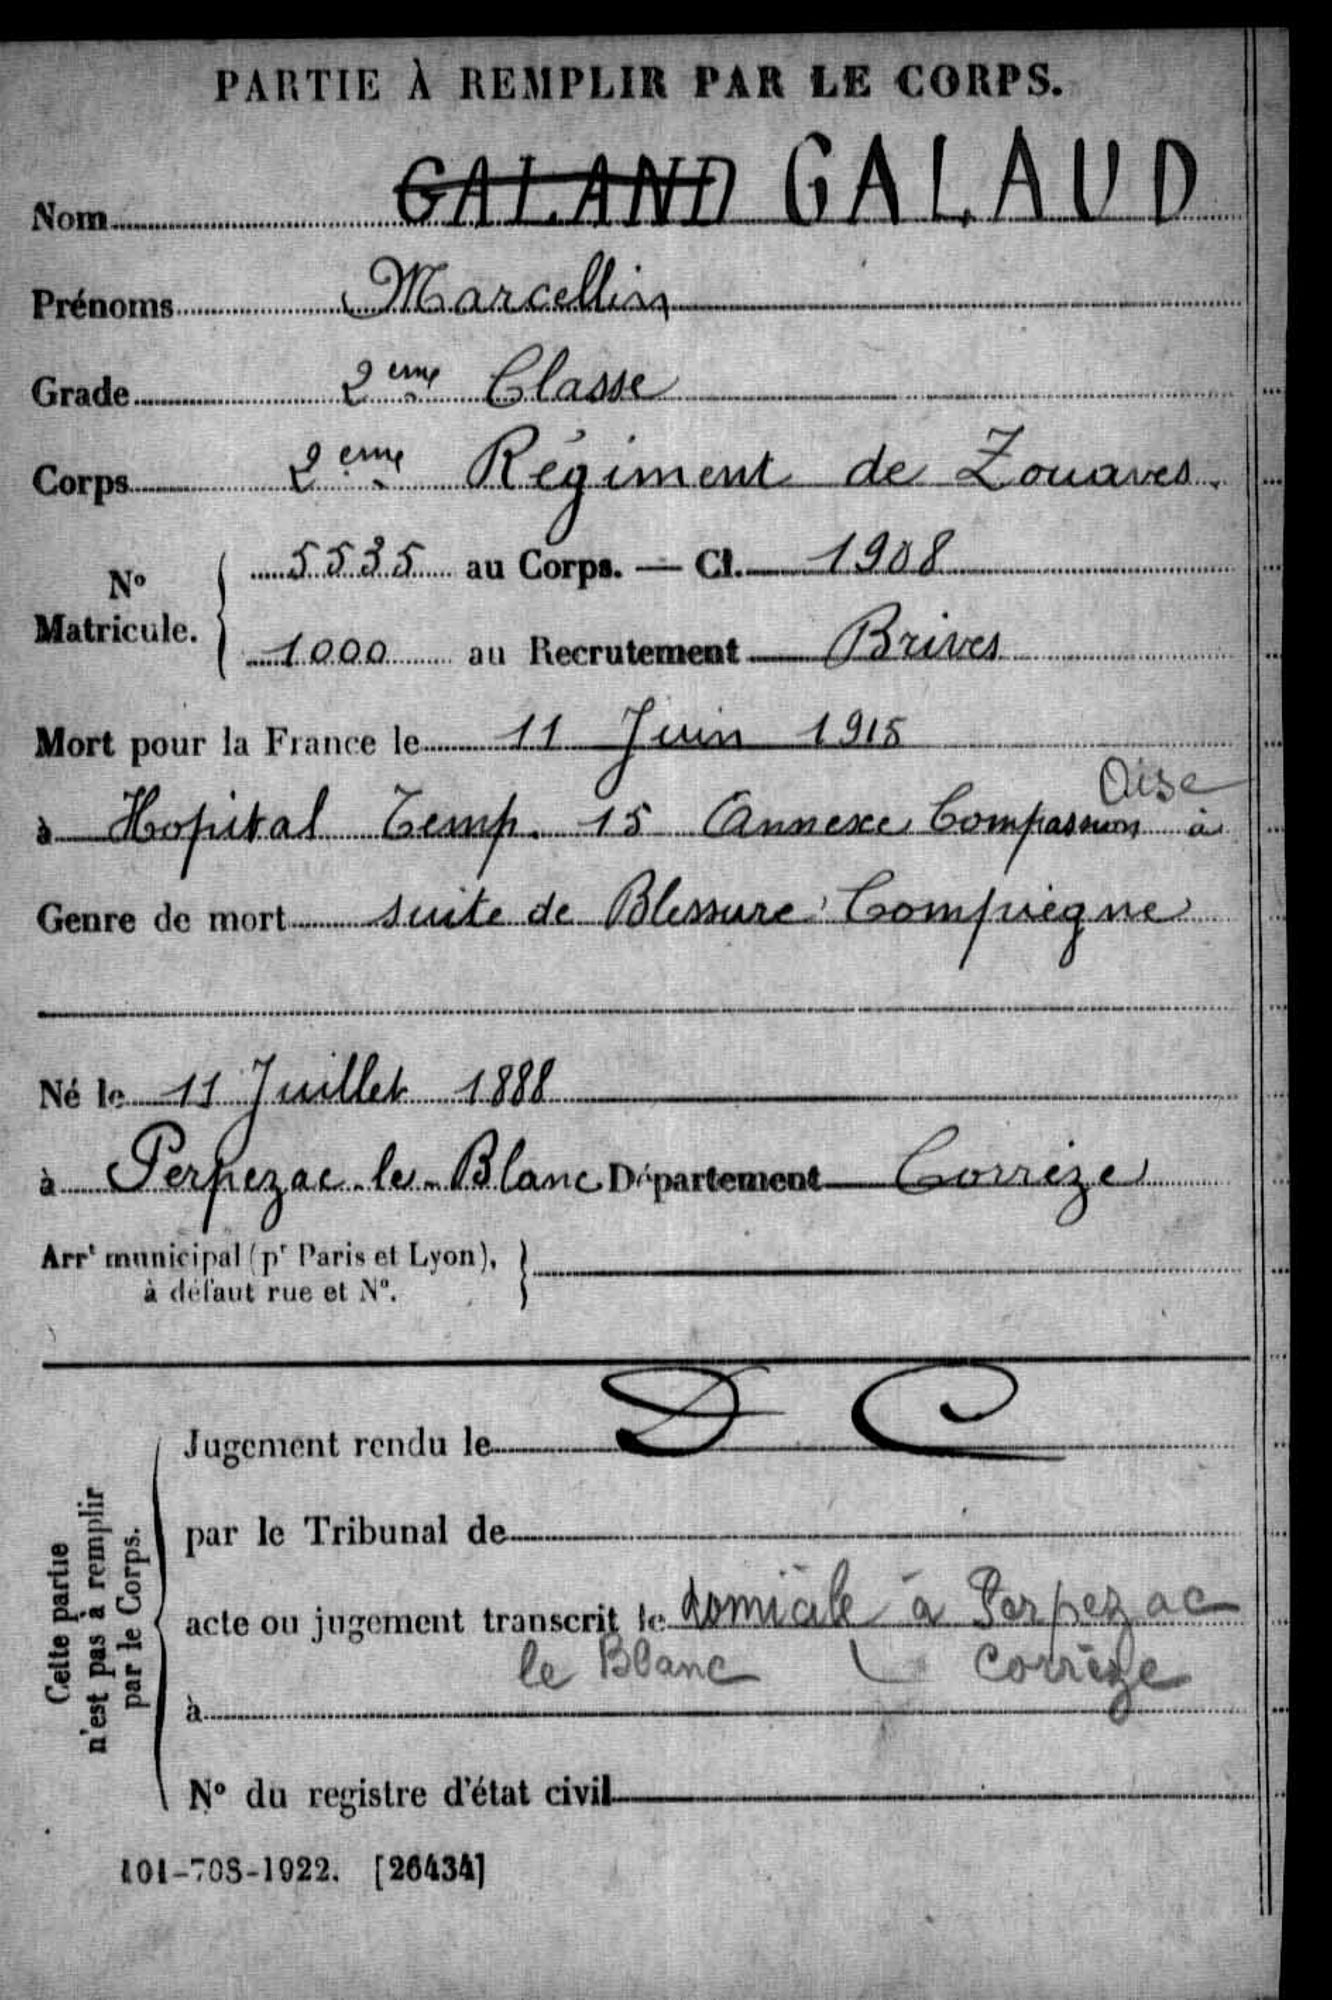 PARTIE À REMPLIR PAR LE CORPS.
Nom GALAND GALAUD
Prénoms Marcellin
Grade 2eme Classe
Corps 2eme Régiment de Zouaves.
No Matricule. { 5535 au Corps. — Cl. 1908
1000 au Recrutement Brives
Mort pour la France le 11 Juin 1915
Oise
à Hopital Temp. 15 Annexe Compassion à
Genre de mort suite de Blessure Compiègne
Né le 11 Juillet 1888
à Perpezac-le-Blanc Département Corrèze
Arrt municipal (pr Paris et Lyon), }
à défaut rue et No.
D C
Jugement rendu le
par le Tribunal de
acte ou jugement transcrit le domicile à Perpezac
le Blanc Corrèze
à
No du registre d'état civil
Cette partie
n'est pas à remplir
par le Corps.
101-708-1922. [26434]